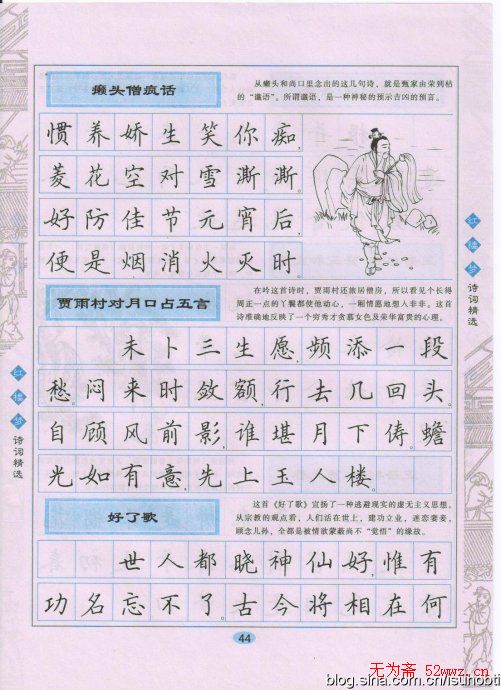 癞头僧疯话
从癞头和尚口里念出的这几句诗，就是甄家由荣到枯
的“谶语”。所谓谶语，是一种神秘的预示吉凶的预言。
惯养娇生笑你痴，
菱花空对雪澌澌。
好防佳节元宵后，
便是烟消火灭时。
贾雨村对月口占五言
在吟这首诗时，贾雨村还旅居僧房，所以看见个长得
周正一点的丫鬟都使他动心，一厢情愿地想入非非。这首
诗准确地反映了一个穷秀才贪慕女色及荣华富贵的心理。
未卜三生愿，频添一段
愁。闷来时敛额，行去几回头。
自顾风前影，谁堪月下俦。蟾
光如有意，先上玉人楼。
好了歌
这首《好了歌》宣扬了一种逃避现实的虚无主义思想。
从宗教的观点看，人们活在世上，建功立业，迷恋妻妾，
顾念儿孙，全都是被情欲蒙蔽尚不“觉悟”的缘故。
世人都晓神仙好，惟有
功名忘不了古今将相在何
44
红楼梦
诗词精选
红楼梦
诗词精选
无为斋 52wwz.cn
blog.sina.com.cn/isunobti